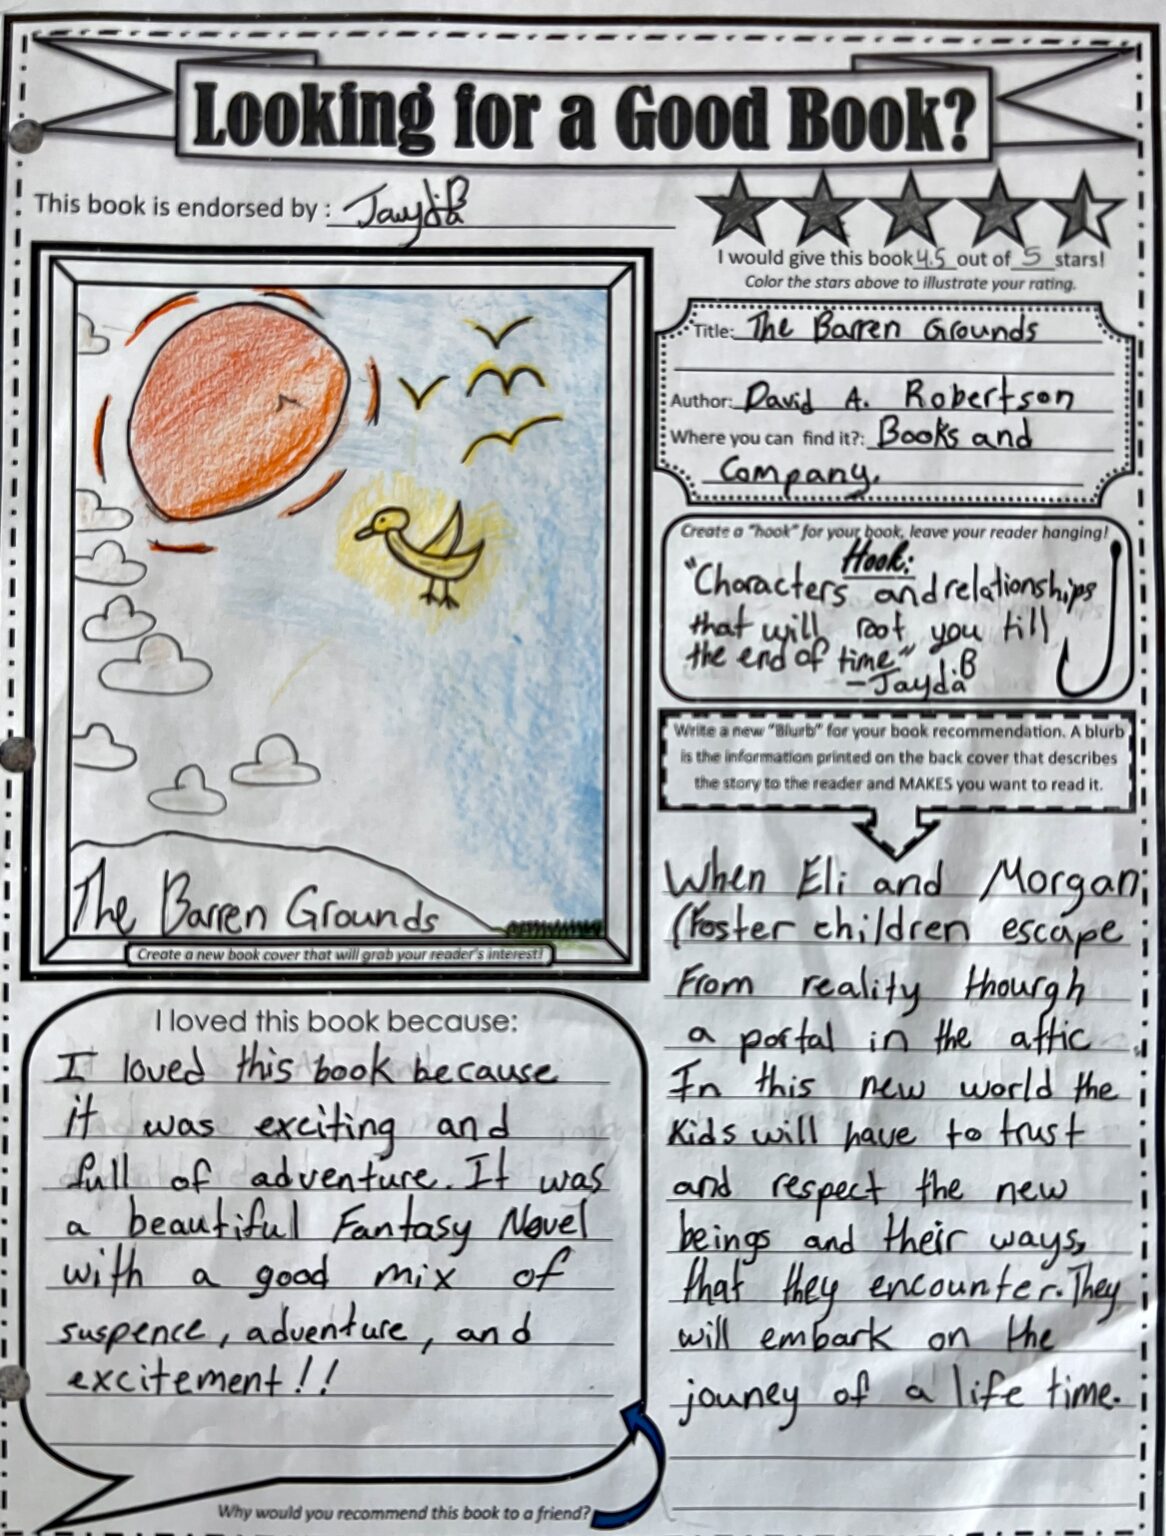 Looking for a Good Book?
This book is endorsed by : Jayda B
I would give this book 4.5 out of 5 stars!
Color the stars above to illustrate your rating.
Title: The Barren Grounds
Author: David A. Robertson
Where you can find it?: Books and
Company.
Create a "hook" for your book, leave your reader hanging!
Hook:
"Characters and relationships
that will root you till
the end of time"
-Jayda B
Write a new "Blurb" for your book recommendation. A blurb
is the information printed on the back cover that describes
the story to the reader and MAKES you want to read it.
When Eli and Morgan
(Foster children escape
From reality thourgh
a portal in the attic
In this new world the
Kids will have to trust
and respect the new
beings and their ways,
that they encounter. They
will embark on the
jouney of a life time.
The Barren Grounds
Create a new book cover that will grab your reader's interest!
I loved this book because:
I loved this book because
it was exciting and
full of adventure. It was
a beautiful Fantasy Novel
with a good mix of
suspence, adventure, and
excitement!!
Why would you recommend this book to a friend?